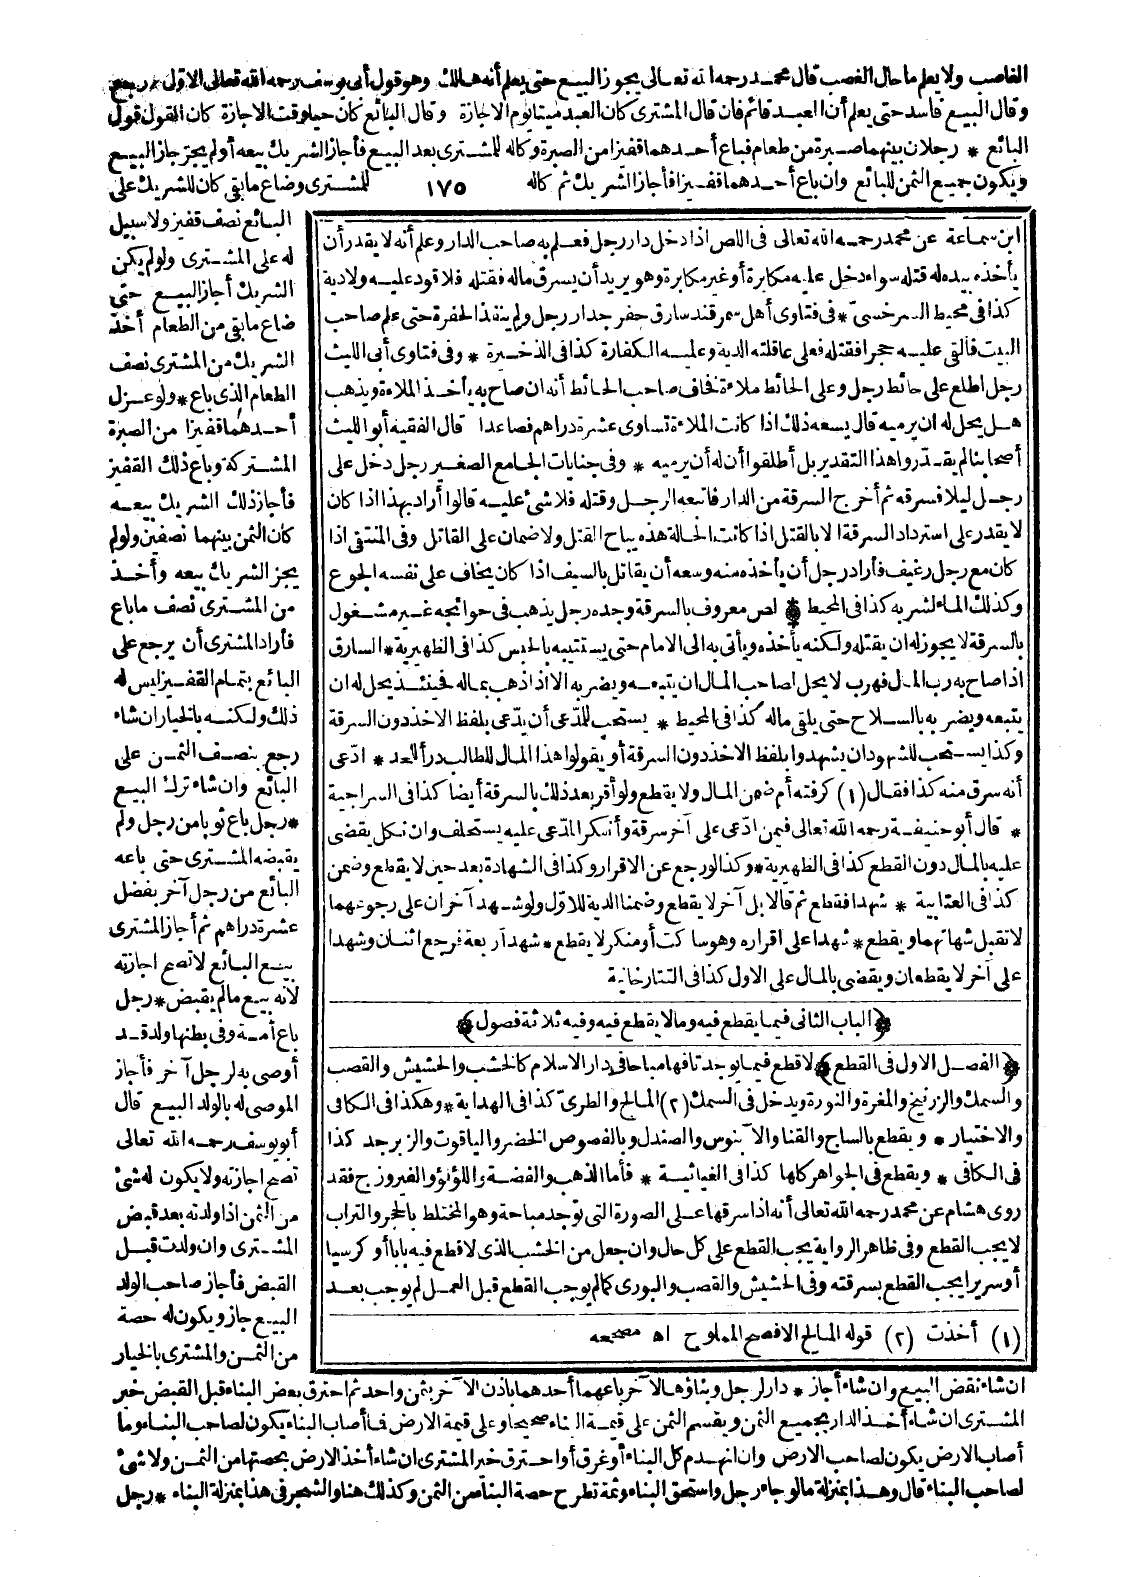 الغاصب ولا يعلم ما حال الغصب قال محمد رحمه الله تعالى يجوز البيع حتى يعلم أنه هالك وهو قول أبي يوسف رحمه الله تعالى الاول * رجع
وقال البيع فاسد حتى يعلم أن العبد قائم فان قال المشترى كان العبد ميتا يوم الاجازة وقال البائع كان حيا وقت الاجازة كان القول قول
البائع * رجلان بينهما صبرة من طعام فباع أحدهما قفيزا من الصبرة وكاله للمشترى بعد البيع فأجاز الشريك بيعه أو لم يجز جاز البيع
ويكون جميع الثمن للبائع وان باع أحدهما قفيزا فأجاز الشريك ثم كاله ١٧٥ للمشترى وضاع ما بقى كان للشريك على
البائع نصف قفيز ولا سبيل
له على المشترى ولو لم يكن
الشريك أجاز البيع حتى
ضاع ما بقى من الطعام أخذ
الشريك من المشترى نصف
الطعام الذى باع * ولو عزل
أحدهما قفيزا من الصبرة
المشتركة وباع ذلك القفيز
فأجاز ذلك الشريك بيعه
كان الثمن بينهما نصفين ولو لم
يجز الشريك بيعه وأخذ
من المشترى نصف ما باع
فأراد المشترى أن يرجع على
البائع بتمام القفيز ليس له
ذلك ولكنه بالخيار ان شاء
رجع بنصف الثمن على
البائع وان شاء ترك البيع
* رجل باع ثوبا من رجل ولم
يقبضه المشترى حتى باعه
البائع من رجل آخر بفضل
عشرة دراهم ثم أجاز المشترى
بيع البائع لا تصح اجازته
لانه بيع ما لم يقبض * رجل
باع أمة وفى بطنها ولد قد
أوصى به لرجل آخر فأجاز
الموصى له بالولد البيع قال
أبو يوسف رحمه الله تعالى
تصح اجازته ولا يكون له شئ
من الثمن اذا ولدته بعد قبض
المشترى وان ولدت قبل
القبض فأجاز صاحب الولد
البيع جاز ويكون له حصة
من الثمن والمشترى بالخيار
ان شاء نقض البيع وان شاء أجاز * دار لرجل وبناؤها لآخر باعهما أحدهما باذن الآخر بثمن واحد ثم احترق بعض البناء قبل القبض خير
المشترى ان شاء أخذ الدار بجميع الثمن ويقسم الثمن على قيمة البناء صحيحا وعلى قيمة الارض فما أصاب البناء يكون لصاحب البناء وما
أصاب الارض يكون لصاحب الارض وان انهدم كل البناء أو غرق أو احترق خير المشترى ان شاء أخذ الارض بحصتها من الثمن ولا شئ
لصاحب البناء قال وهذا بمنزلة ما لو جاء رجل واستحق البناء وثمة تطرح حصة البناء من الثمن وكذلك هنا والشجر فى هذا بمنزلة البناء * رجل
ابن سماعة عن محمد رحمه الله تعالى فى اللص اذا دخل دار رجل فعلم به صاحب الدار وعلم أنه لا يقدر أن
يأخذه بيده له قتله سواء دخل عليه مكابرة أو غير مكابرة وهو يريد أن يسرق ماله فقتله فلا قود عليه ولا دية
كذا فى محيط السرخسى * فى فتاوى أهل سمرقند سارق حفر جدار رجل ولم ينفذ الحفرة حتى علم صاحب
البيت فألقى عليه حجرا فقتله فعلى عاقلته الدية وعليه الكفارة كذا فى الذخيرة * وفى فتاوى أبى الليث
رجل اطلع على حائط رجل وعلى الحائط ملاءة فخاف صاحب الحائط أنه ان صاح به يأخذ الملاءة ويذهب
هل يحل له ان يرميه قال يسعه ذلك اذا كانت الملاءة تساوى عشرة دراهم فصاعدا قال الفقيه أبو الليث
أصحابنا لم يقدروا هذا التقدير بل أطلقوا أن له أن يرميه * وفى جنايات الجامع الصغير رجل دخل على
رجل ليلا فسرقه ثم أخرج السرقة من الدار فاتبعه الرجل وقتله فلا شئ عليه قالوا أراد بهذا اذا كان
لا يقدر على استرداد السرقة الا بالقتل اذا كانت الحالة هذه يباح القتل ولا ضمان على القاتل وفى المنتقى اذا
كان مع رجل رغيف فأراد رجل أن يأخذه منه وسعه أن يقاتل بالسيف اذا كان يخاف على نفسه الجوع
وكذلك الماء لشربه كذا فى المحيط * لص معروف بالسرقة وجده رجل يذهب فى حوائجه غير مشغول
بالسرقة لا يجوز له ان يقتله ولكنه يأخذه ويأتى به الى الامام حتى يستتيبه بالحبس كذا فى الظهيرية * السارق
اذا صاح به رب المال فهرب لا يحل لصاحب المال ان يتبعه ويضربه الا اذا ذهب بماله فحينئذ يحل له ان
يتبعه ويضربه بالسلاح حتى يلقى ماله كذا فى المحيط * يستحب للمدّعى أن يدّعى بلفظ الاخذ دون السرقة
وكذا يستحب للشهود ان يشهدوا بلفظ الاخذ دون السرقة أو يقولوا هذا المال للطالب درأ للحد * ادّعى
أنه سرق منه كذا فقال (١) كرفته أم ضمن المال ولا يقطع ولو أقر بعد ذلك بالسرقة أيضا كذا فى السراجية
* قال أبو حنيفة رحمه الله تعالى فيمن ادّعى على آخر سرقة وأنكر المدّعى عليه يستحلف وان نكل يقضى
عليه بالمال دون القطع كذا فى الظهيرية * وكذا لو رجع عن الاقرار وكذا فى الشهادة بعد حين لا يقطع وضمن
كذا فى العتابية * شهدا فقطع ثم قالا بل آخر لا يقطع وضمنا الدية للاوّل ولو شهد آخران على رجوعهما
لا تقبل شهادتهما ويقطع * شهدا على اقراره وهو ساكت أو منكر لا يقطع * شهد أربعة فرجع اثنان وشهدا
على آخر لا يقطعان ويقضى بالمال على الاول كذا فى التتارخانية
﴿الباب الثانى فيما يقطع فيه وما لا يقطع فيه وفيه ثلاثة فصول﴾
﴿الفصل الاول فى القطع﴾ لا قطع فيما يوجد تافها مباحا فى دار الاسلام كالخشب والحشيش والقصب
والسمك والزرنيخ والمغرة والنورة ويدخل فى السمك (٢) المالح والطرى كذا فى الهداية * وهكذا فى الكافى
والاختيار * ويقطع بالساج والقنا والآبنوس والصندل وبالفصوص الخضر والياقوت والزبرجد كذا
فى الكافى * ويقطع فى الجواهر كلها كذا فى الغياثية * فأما الذهب والفضة واللؤلؤ والفيروزج فقد
روى هشام عن محمد رحمه الله تعالى أنه اذا سرقها على الصورة التى توجد مباحة وهو المختلط بالحجر والتراب
لا يجب القطع وفى ظاهر الرواية يجب القطع على كل حال وان جعل من الخشب الذى لا قطع فيه بابا أو كرسيا
أو سريرا يجب القطع بسرقته وفى الحشيش والقصب والبورى كما لم يوجب القطع قبل العمل لم يوجب بعد
(١) أخذت (٢) قوله المالح الافصح المملوح اه مصححه